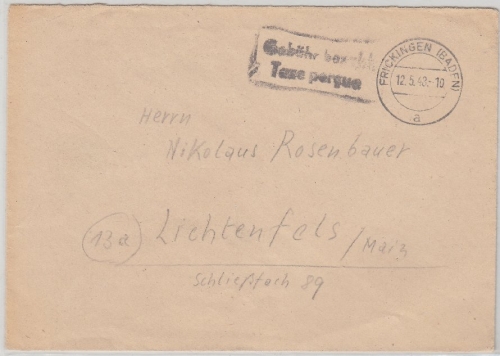 Gebühr bezahlt
Taxe perçue
FRICKINGEN (BADEN)
12.5.48.-10
a
Herrn
Nikolaus Rosenbauer
13a Lichtenfels/Main
Schließfach 89